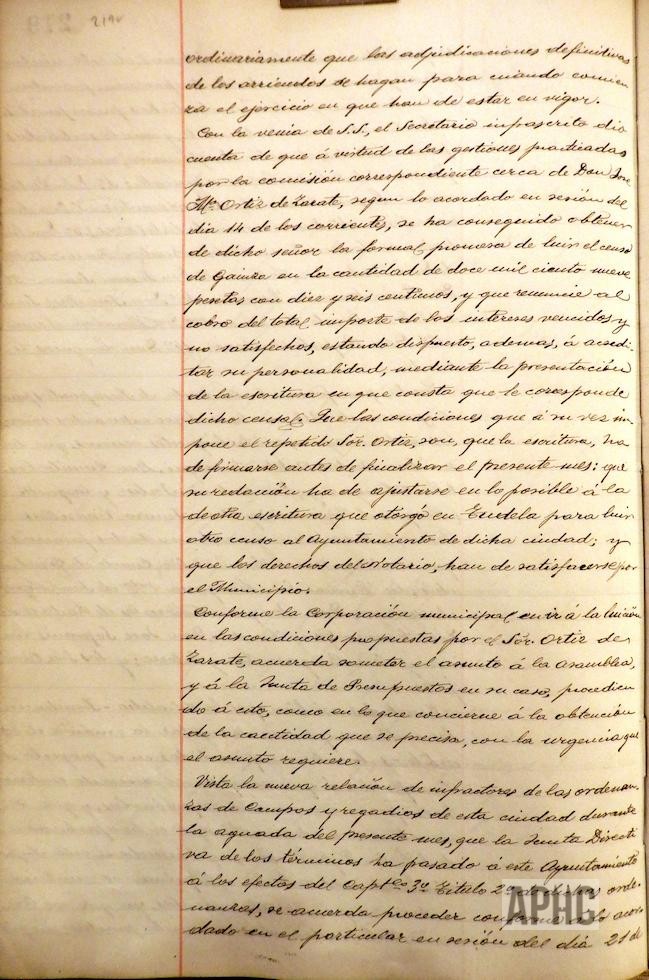 219v
ordinariamente que las adjudicaciones definitivas
de los arriendos se hagan para cuando comien
za el ejercicio en que han de estar en vigor.
Con la venia de S.S., el Secretario infrascrito dio
cuenta de que á virtud de las gestiones practicadas
por la comisión correspondiente cerca de Don José
Mª Ortiz de Zarate, segun lo acordado en sesión del
dia 14 de los corrientes, se ha conseguido obtener
de dicho señor la formal promesa de luir el censo
de Gainza en la cantidad de doce mil ciento nueve
pesetas con diez y seis centimos, y que renuncie al
cobro del total importe de los intereses vencidos y
no satisfechos, estando dispuesto, ademas, á acredi-
tar su personalidad, mediante la presentación
de la escritura en que consta que le corresponde
dicho censal. Que las condiciones que á su vez im
pone el repetido Sor. Ortiz, son, que la escritura, ha
de firmarse antes de finalizar el presente mes: que
su redacción ha de ajustarse en lo posible á la
de otra escritura que otorgó en Tudela para luir
otro censo al Ayuntamiento de dicha ciudad; y
que los derechos del Notario, han de satisfacerse por
el Municipio.
Conforme la Corporación municipal en ir á la luición
en las condiciones propuestas por el Sor. Ortiz de
Zarate, acuerda someter el asunto á la Asamblea,
y á la Junta de Presupuestos en su caso, procedien
do á esto, como en lo que concierne á la obtención
de la cantidad que se precisa, con la urgencia que
el asunto requiere.
Vista la nueva relación de infractores de las ordenan-
zas de Campos y regadios de esta ciudad durante
la aguada del presente mes, que la Junta Directi
va de los términos ha pasado á este Ayuntamiento
á los efectos del Capt.lo 3º Titulo 2º de dichas orde-
nanzas, se acuerda proceder conforme á lo acor-
dado en el particular en sesión del dia 21 de
APHC